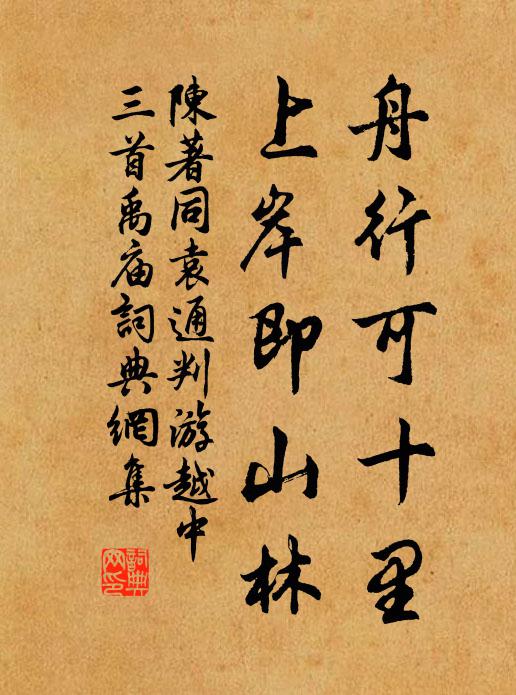 舟行可十里
上岸即山林
陳著同袁通判游越中
三首禹庙詞典網集
詞典
网印